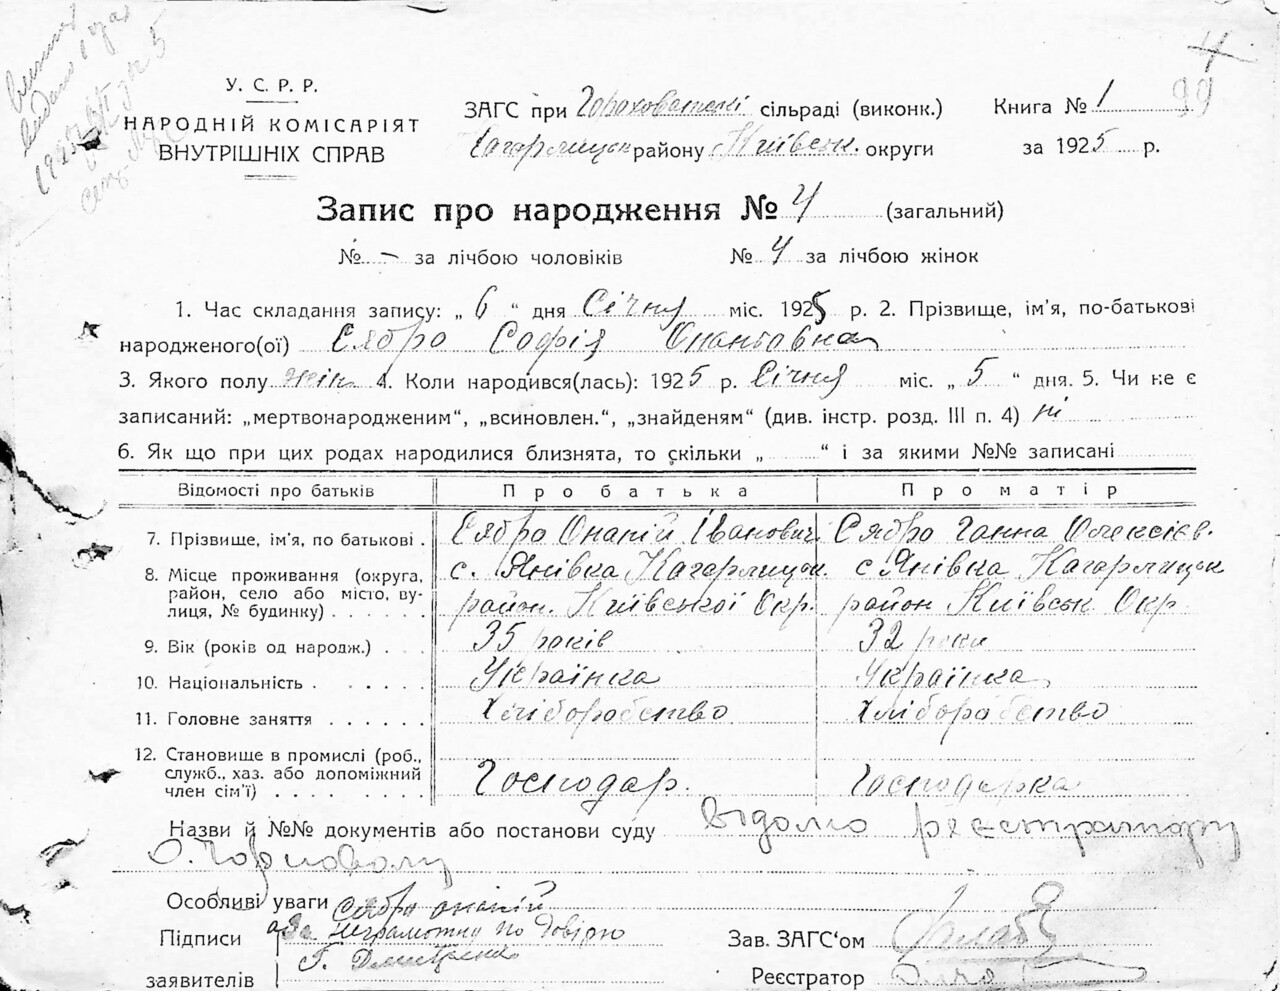 У. С. Р. Р.
НАРОДНІЙ КОМІСАРІЯТ
ВНУТРІШНІХ СПРАВ
ЗАГС при Гороховатській сільраді (виконк.)
Кагарлицьк району Київськ. округи
Книга № 1 99
за 1925 р.
4
Запис про народження № 4 (загальний)
№ - за лічбою чоловіків № 4 за лічбою жінок
1. Час складання запису: „ 6 “ дня Січня міс. 1925 р. 2. Прізвище, ім'я, по-батькові
народженого(ої) Сябро Софія Онантовна
3. Якого полу жін. 4. Коли народився(лась): 1925 р. Січня міс. „ 5 “ дня. 5. Чи не є
записаний: „мертвонародженим“, „всиновлен.“, „знайденям“ (див. інстр. розд. III п. 4) ні
6. Як що при цих родах народилися близнята, то скільки „ “ і за якими №№ записані
Відомості про батьків Про батька Про матір
7. Прізвище, ім'я, по батькові . Сябро Онапій Іванович Сябро Ганна Олексієв.
8. Місце проживання (округа, с. Янівка Кагарлицьк с Янівка Кагарлицьк
район, село або місто, ву-
лиця, № будинку) . . . . . район. Київської Окр. район Київськ Окр
9. Вік (років од народж.) . . . 35 років 32 роки
10. Національність . . . . . . Українка Українка
11. Головне заняття . . . . . . Хліборобство Хліборобство
12. Становище в промислі (роб.,
служб., хаз. або допоміжний
член сім'ї) . . . . . . . . Господар. Господарка
Назви й №№ документів або постанови суду Відомо реєстратору
Особливі уваги Сябро Онапій
Підписи а за неграмотну по довірю
заявителів Г. Дмитренко
Зав. ЗАГС‘ом
Реєстратор